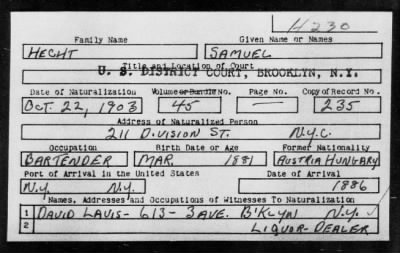 H230
Family Name Given Name or Names
HECHT SAMUEL
Title and Location of Court
U. S. DISTRICT COURT, BROOKLYN, N.Y.
Date of Naturalization Volume or Bundle No. Page No. Copy of Record No.
OCT. 22, 1903 45 — 235
Address of Naturalized Person
211 DIVISION ST. N.Y.C.
Occupation Birth Date or Age Former Nationality
BARTENDER MAR 1881 AUSTRIA HUNGARY
Port of Arrival in the United States Date of Arrival
N.Y. N.Y. 1886
Names, Addresses and Occupations of Witnesses To Naturalization
1 DAVID LAVIS- 613- 3 AVE. B'KLYN N.Y.
2 LIQUOR-DEALER